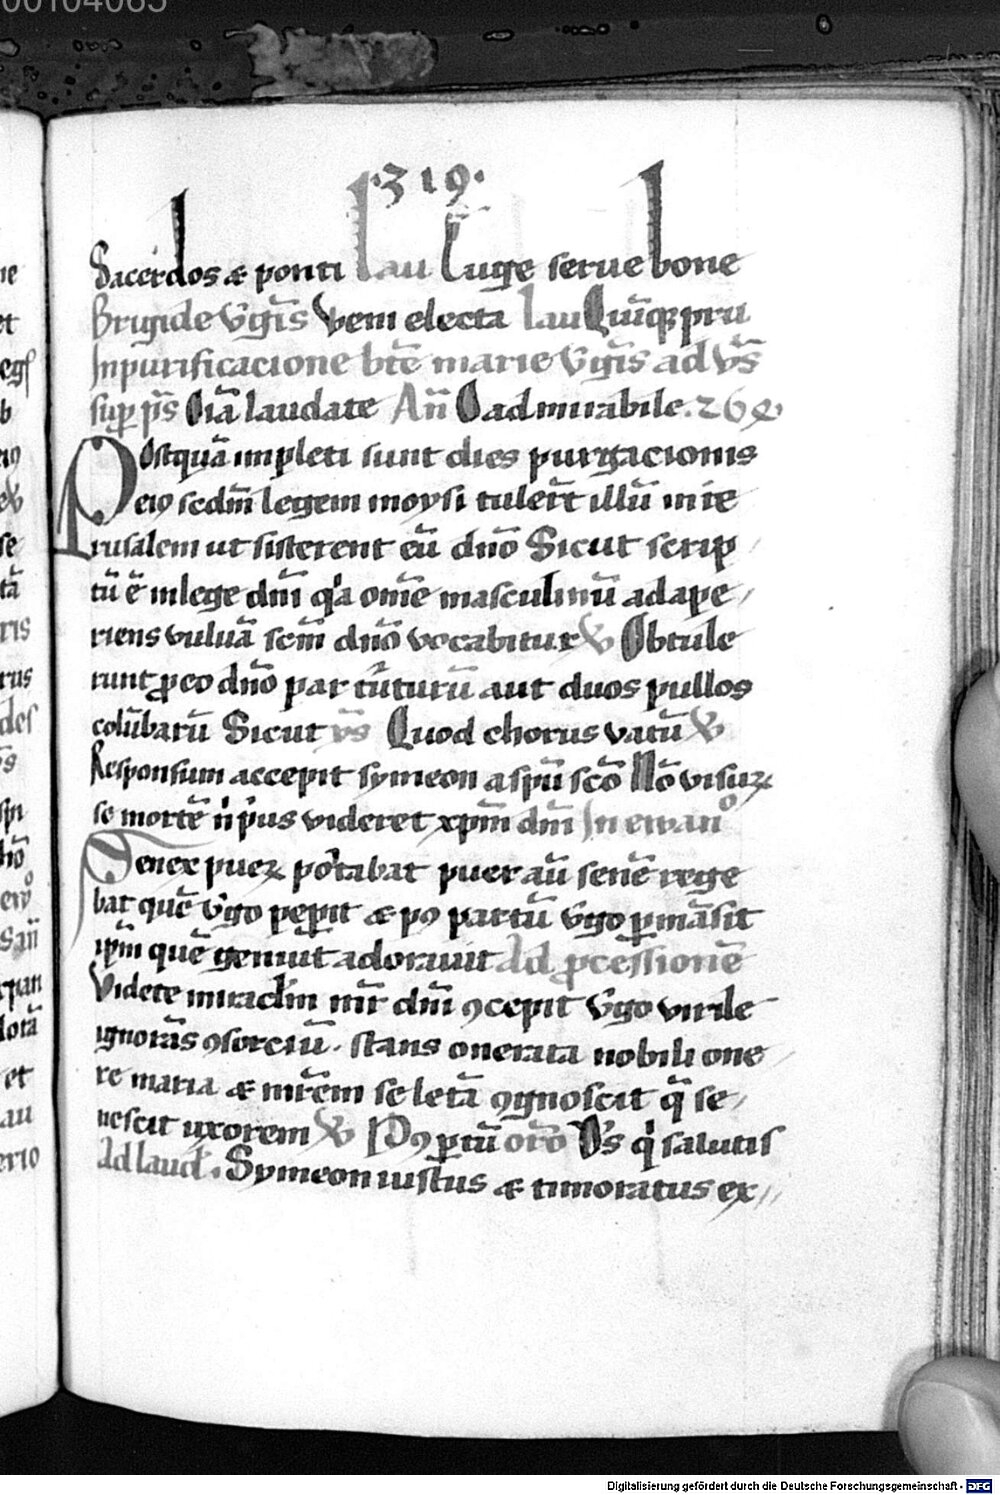 00104065
.319.
Sacerdos et ponti lau Euge serue bone
Brigide v̾gĩs Veni electa lau Quinq̃ pru
In purificacione btẽ marie v̾gĩs ad v̾s
sup̱ p̃s O̅ia laudate An̄ O admirabile .264.
Postquã impleti sunt dies purgacionis
eiꝰ sc̄dm̄ legem moysi tuler̄t illū in ie
rusalem ut sisterent eū dn̄o Sicut scrip
tū ē in lege dn̄i q̾a om̄e masculinū adape
riens vuluā sc̄m dn̄o vocabitur ℣ Obtule
runt ꝓ eo dn̄o par t̾turū aut duos pullos
colūbarū Sicut v̾s Quod chorus vatū ℣
Responsum accepit symeon a spū sc̄o Nō visuꝝ
se mortē n̾ p̾us videret xp̄m dn̄i In ewanᵒ
Senex pueꝝ portabat puer aū senē rege
bat quē v̾go pep̱it et pꝰ partū v̾go p̱māsit
ip̄m quē genuit adorauit Ad ꝓcessionē
Videte miraclm̄ mr̄ dn̄i ꝯcepit v̾go virile
ignorās ꝯsorciū. stans onerata nobili one
re maria et mr̄em se letā ꝯgnoscit q̄ se
nescit uxorem ℣ Pꝰ p̱tū or̄o D̄s q̾ salutis
Ad laud. Symeon iustus et timoratus ex
Digitalisierung gefördert durch die Deutsche Forschungsgemeinschaft - DFG